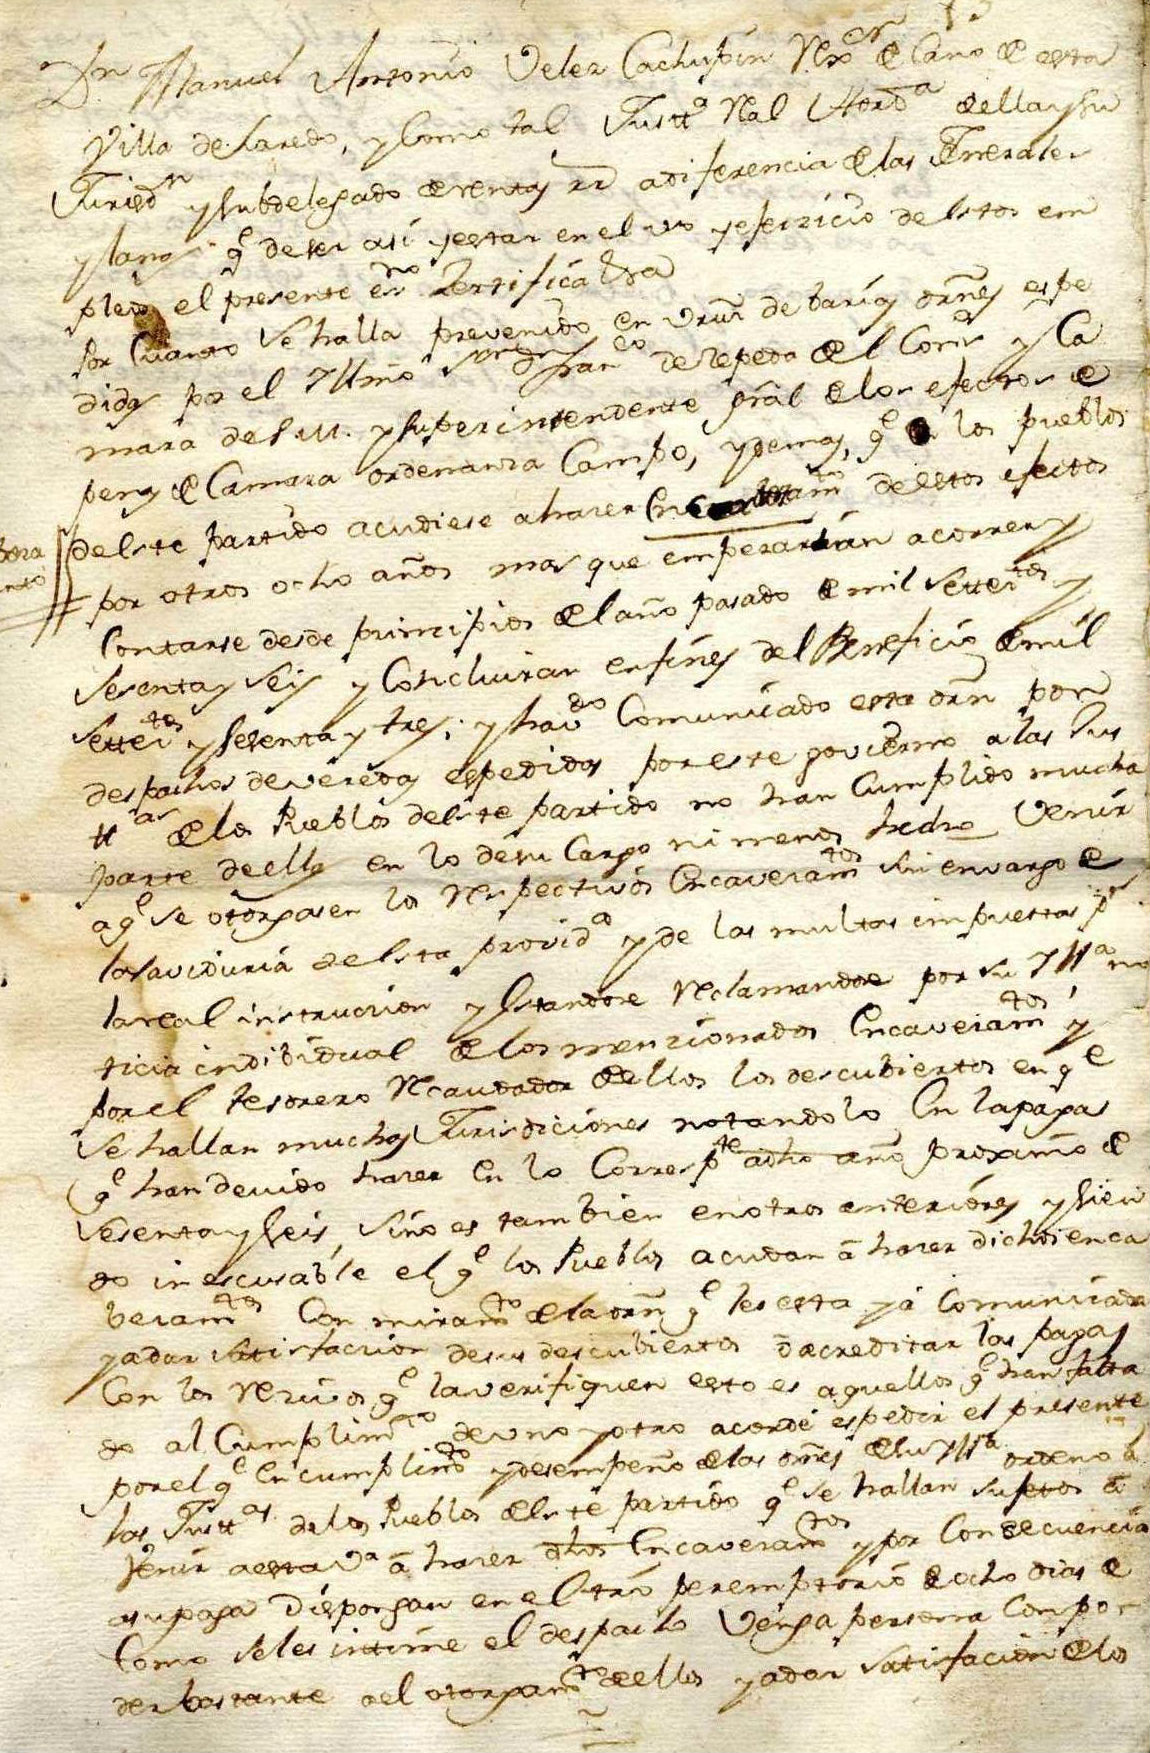 Dn Manuel Antonio Velez Cachupin Rexor Decano de esta
Villa de Laredo, y Como tal Justta Rl Hordª della y su
Jurisdn y subdelegado de rentas rr a diferencia de las Generales
y lanas qe de ser asi y estar en el uso y exercicio de estos em
pleos el presente esno Zertifica
Por Cuanto Se halla prevenido en Vrtud de barias ornes espe
didas por el Yllmo Sor Dn Franco de Zepeda del Consº y Ca
mara de S.M. y Superintendente gral de los efectos de
penas de Camara ordenanza Campo, y demas, qe los pueblos
de este partido acudiese a hazer deestos efectos
por otros ocho años mas que empezarian a correr y
Contarse desde principios del año pasado de mil Settectos y
Sesenta y Seis y Concluiran en fines del Benefico de mil
Settectos y setenta y tres; y havdo Comunicado esta orn por
despachos de veredas espedidos por este govierno a las Jus
ttas de los Pueblos deste partido no han Cumplido mucha
parte de ellas en lo de su Cargo ni menos hecho Venir
a qe se otorgasen los Respectivos Encavezamtos sin envargo de
la Saviduria de esta providª y de las multas impuestas pr
la real instruccion y estandose Reclamandose por su Yllª no
ticia indibidual de los menzionados Encavezamtos y
por el tesorero Recaudador de ellos los descubiertos en qe
Se hallan muchas Jurisdiciones notandolo En la pagas
qe han devido hazer en lo Correspte adho año proximo de
Sesenta y Seis, Sino es tambien en otros anteriores y sien
do inescusable el qe los Pueblos acudan á hazer dichos enca
bezamtos Con miramto de la orn qe les esta yá Comunicada
y a dar satisfaccion de sus descubiertos ó acreditar las pagas
Con los Recivos qe la verifiquen esto es aquellos qe han falta
do al Cumplimto de uno y otro acorde espedir el presente
por el qe en cumplimto y desempeño de las ornes de su Yllª ordeno a
las Justtas de los Pueblos deste partido qe se hallan sujetos á
Venir a esta Vª á hazer dhos Encavezamtos y por Consecuencia
a su paga Dispongan en el trmo peremptorio de ocho dias de
Como se les intime el despacho Venga persona Con po
der bastante ael otorgamto de ellos y a dar Satisfacion de los